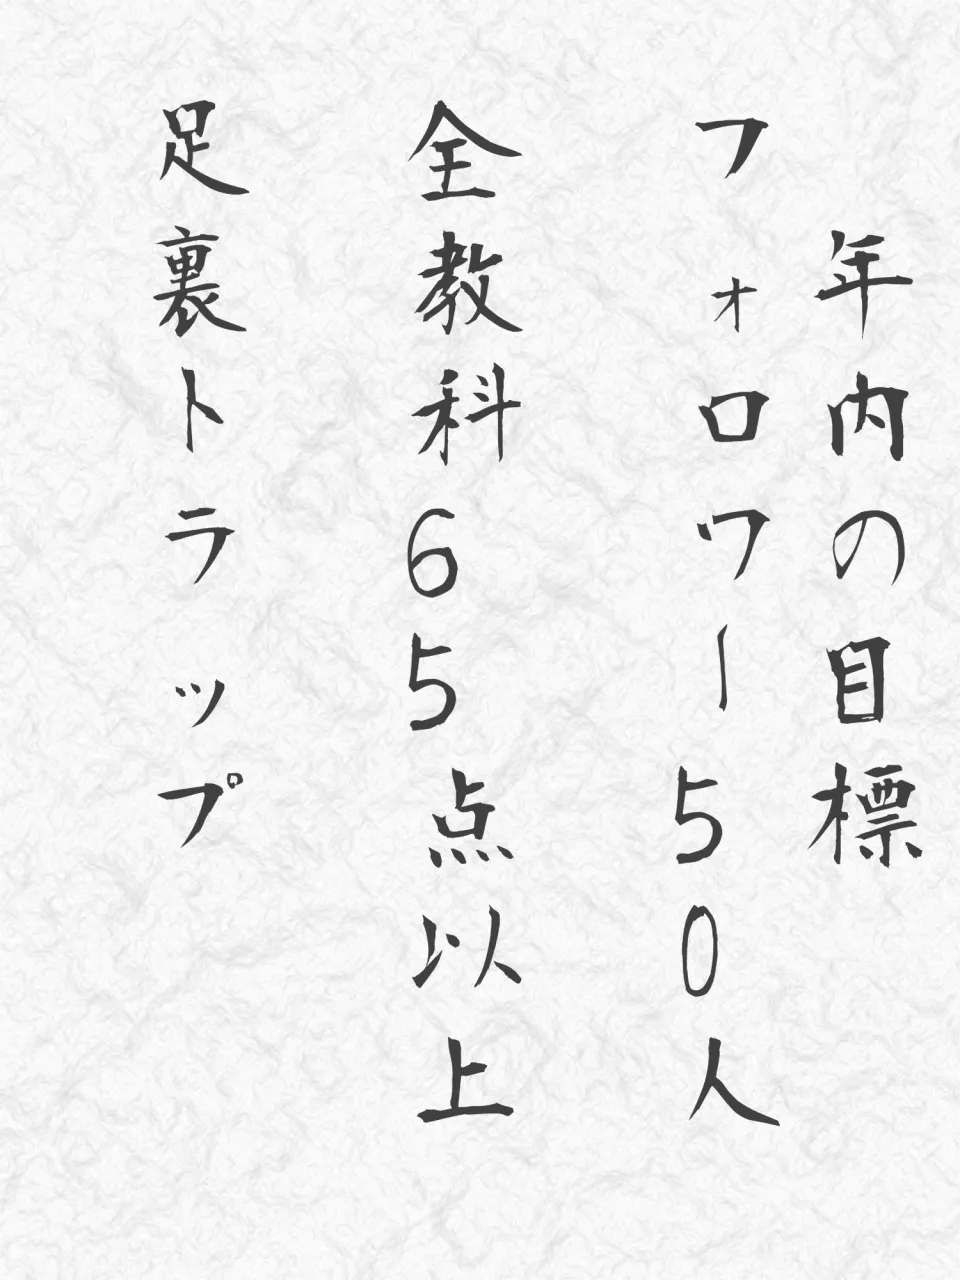 年内の目標
フォロワー50人
全教科65点以上
足裏トラップ